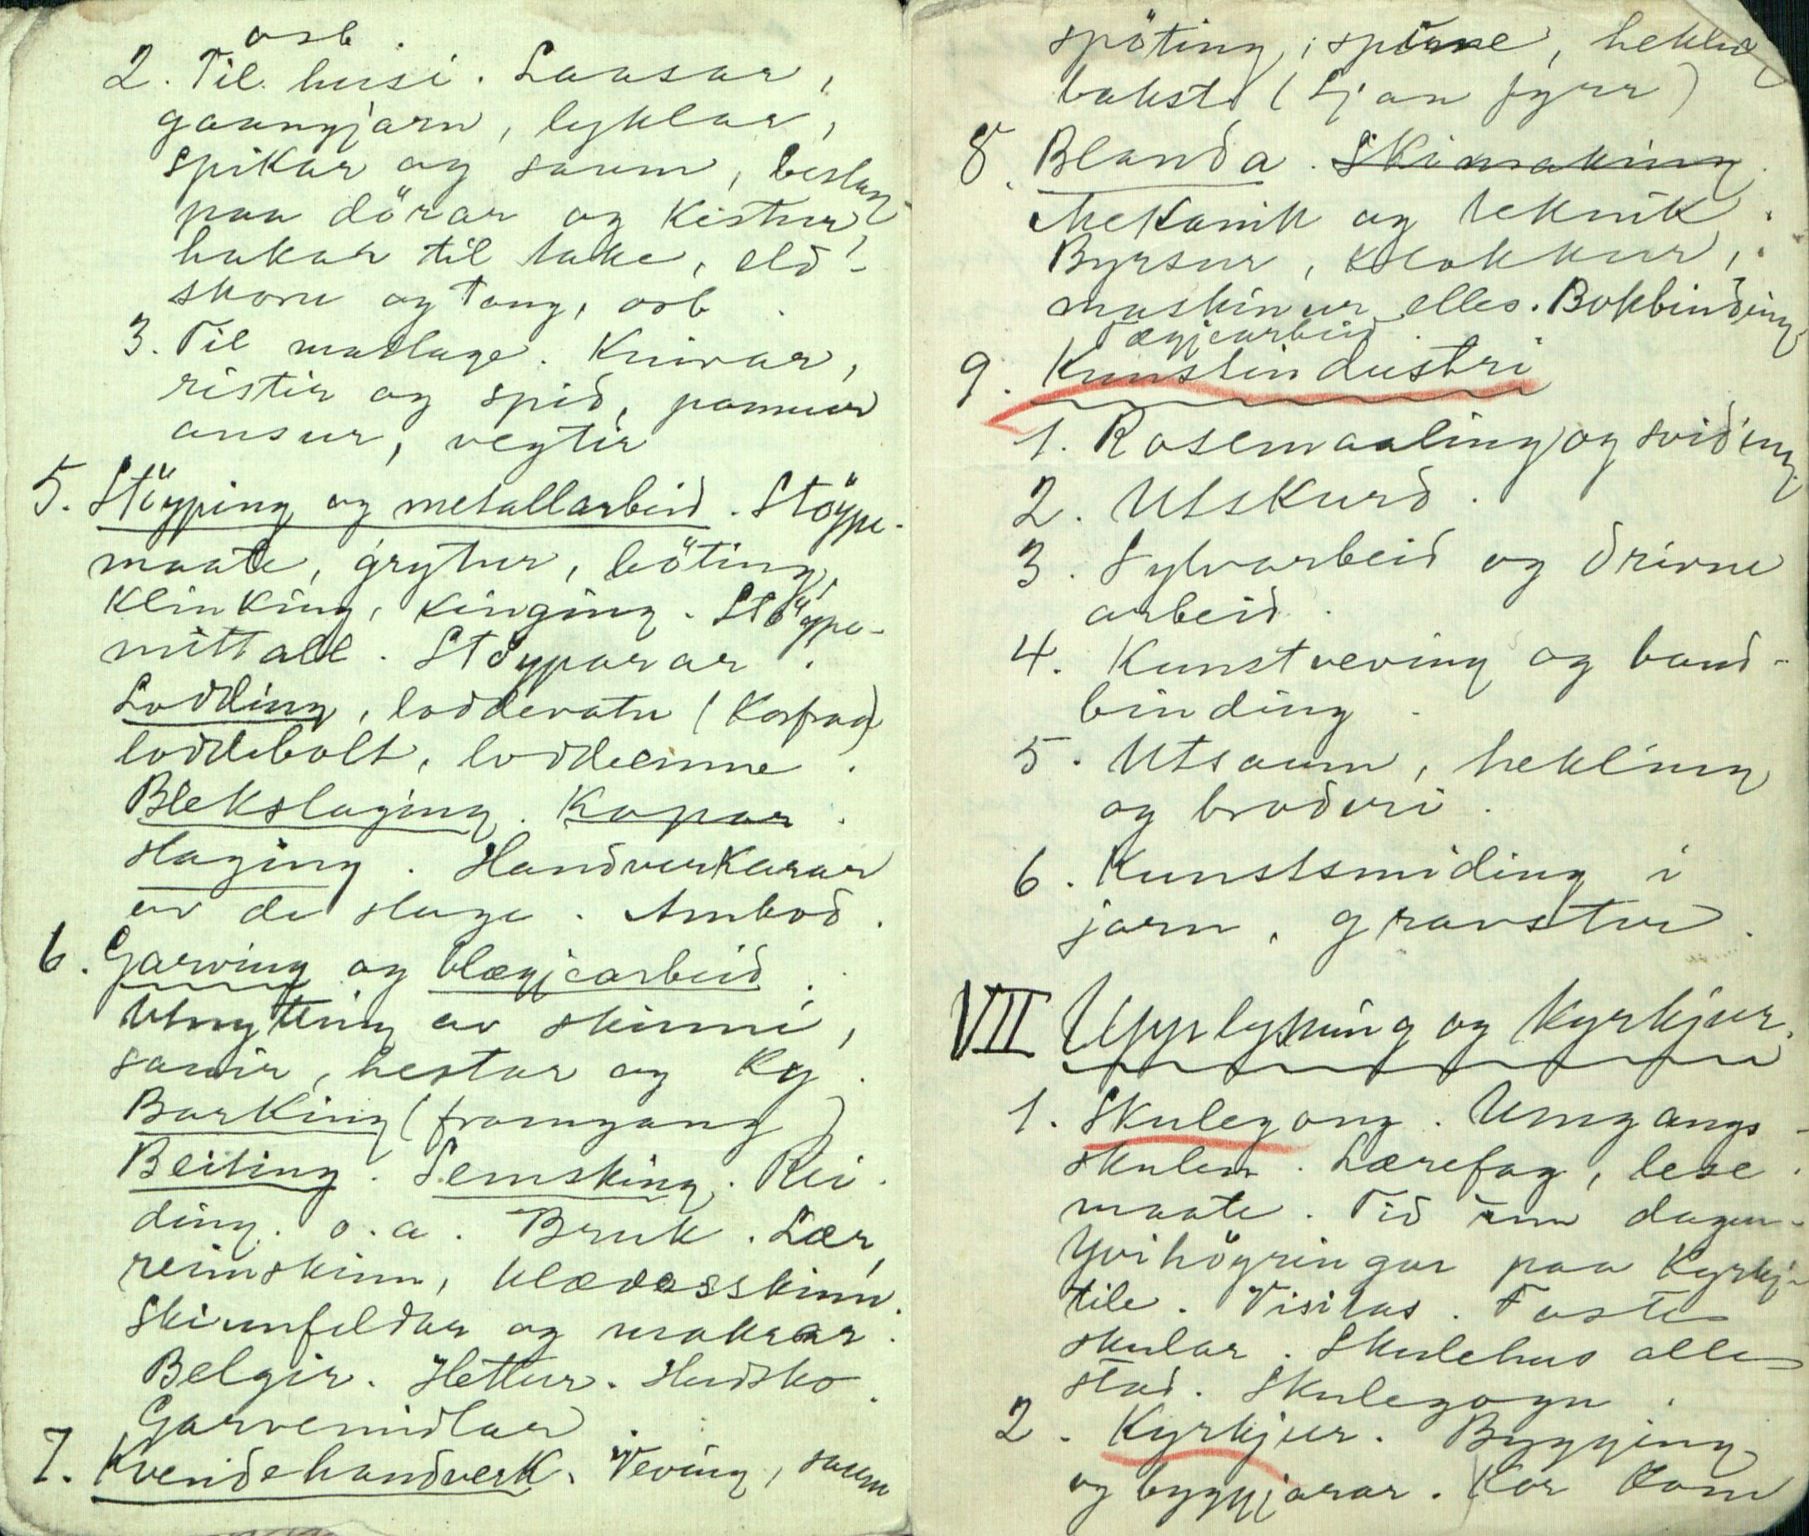 osb.
2. Til husi. Laasar,
gaangjarn, lyklar,
spikar og saum, beslag
paa dörar og kistur,
hakar til take, eld-
skoru og tong, osb.
3. Til matlage. Knivar,
ristir og spid, pannur
ausur, vegtir
5. Stöyping og metallarbeid. Stöype-
maate, grytur, böting,
klinking, kinging. Stöype-
mittall. Stöyparar.
Lodding, loddevatn (
loddebolt, loddeemne.
Blekslaging. Kopar-
slaging. Handverkarar
av de slage. Ambod.
6. Garving og tlægjearbeid.
Utnytting av skinni,
sauir, hestar og ky.
Barking (framgang)
Beiting. Semsking. Rei-
ding. o.a. Bruk. Lær,
reimskinn, klædesskinn.
Skinnfeldar og makarar.
Belgir. Hettur. Hudsko.
Garvemidlar
7. Kvendehandverk. Veving, saum
spöting, spinne, hekling
bakst. (Sjaa fyrr)
8. Blanda. Skimaking.
Mekanik og teknik.
Byrsur, klokkur,
maskinur elles. Bokbinding.
Tægjearbeid.
9. Kunstindustri
1. Rosemaaling og sviding
2. Utskurd.
3. Sylvarbeid og drivne
arbeid.
4. Kunstveving og band-
binding.
5. Utsaum, hekling
og broderi.
6. Kunstsmiding i
jarn, gravstur.
VII Upplysning og Kyrkjur.
1. Skulegong. Umgangs-
skulen. Lærefag, lese-
maate. Tid um dagen.
Yvihöyringar paa Kyrkj-
tile. Visitas. Faste
skular. Skulehus alle
stad. Skulegogn.
2. Kyrkjur. Bygging
og byggjarar. Kor kom